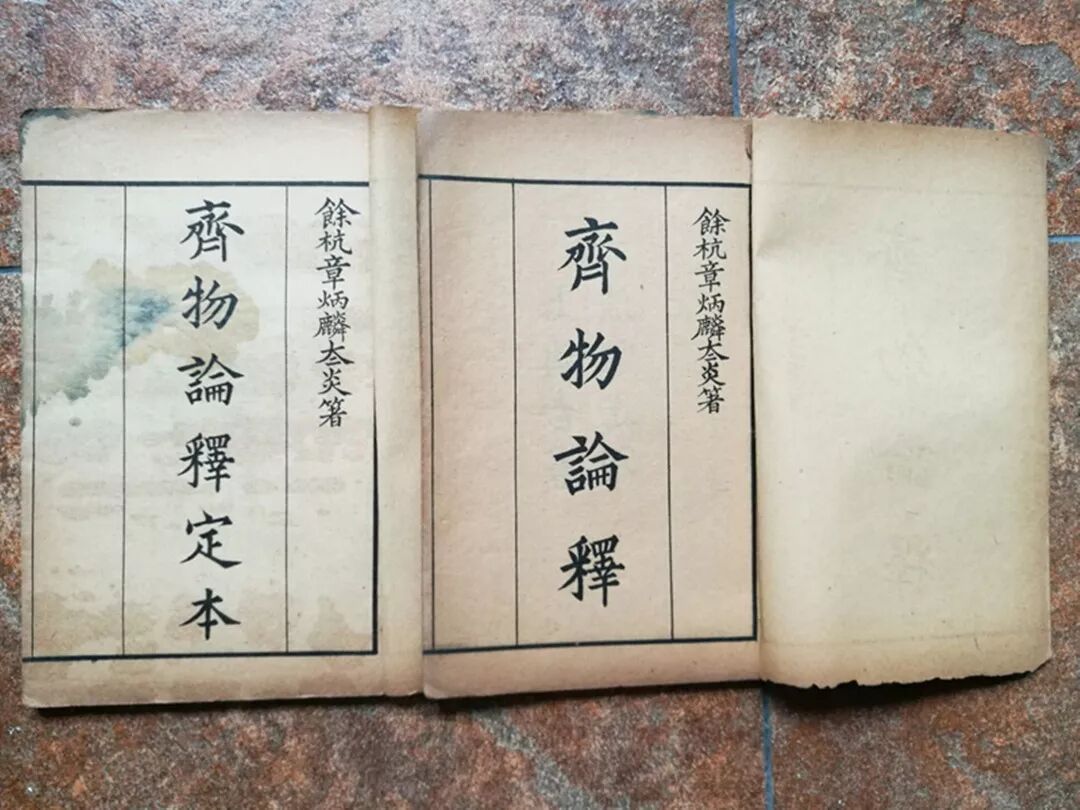 餘杭章炳麟太炎箸
齊物論釋
餘杭章炳麟太炎箸
齊物論釋定本